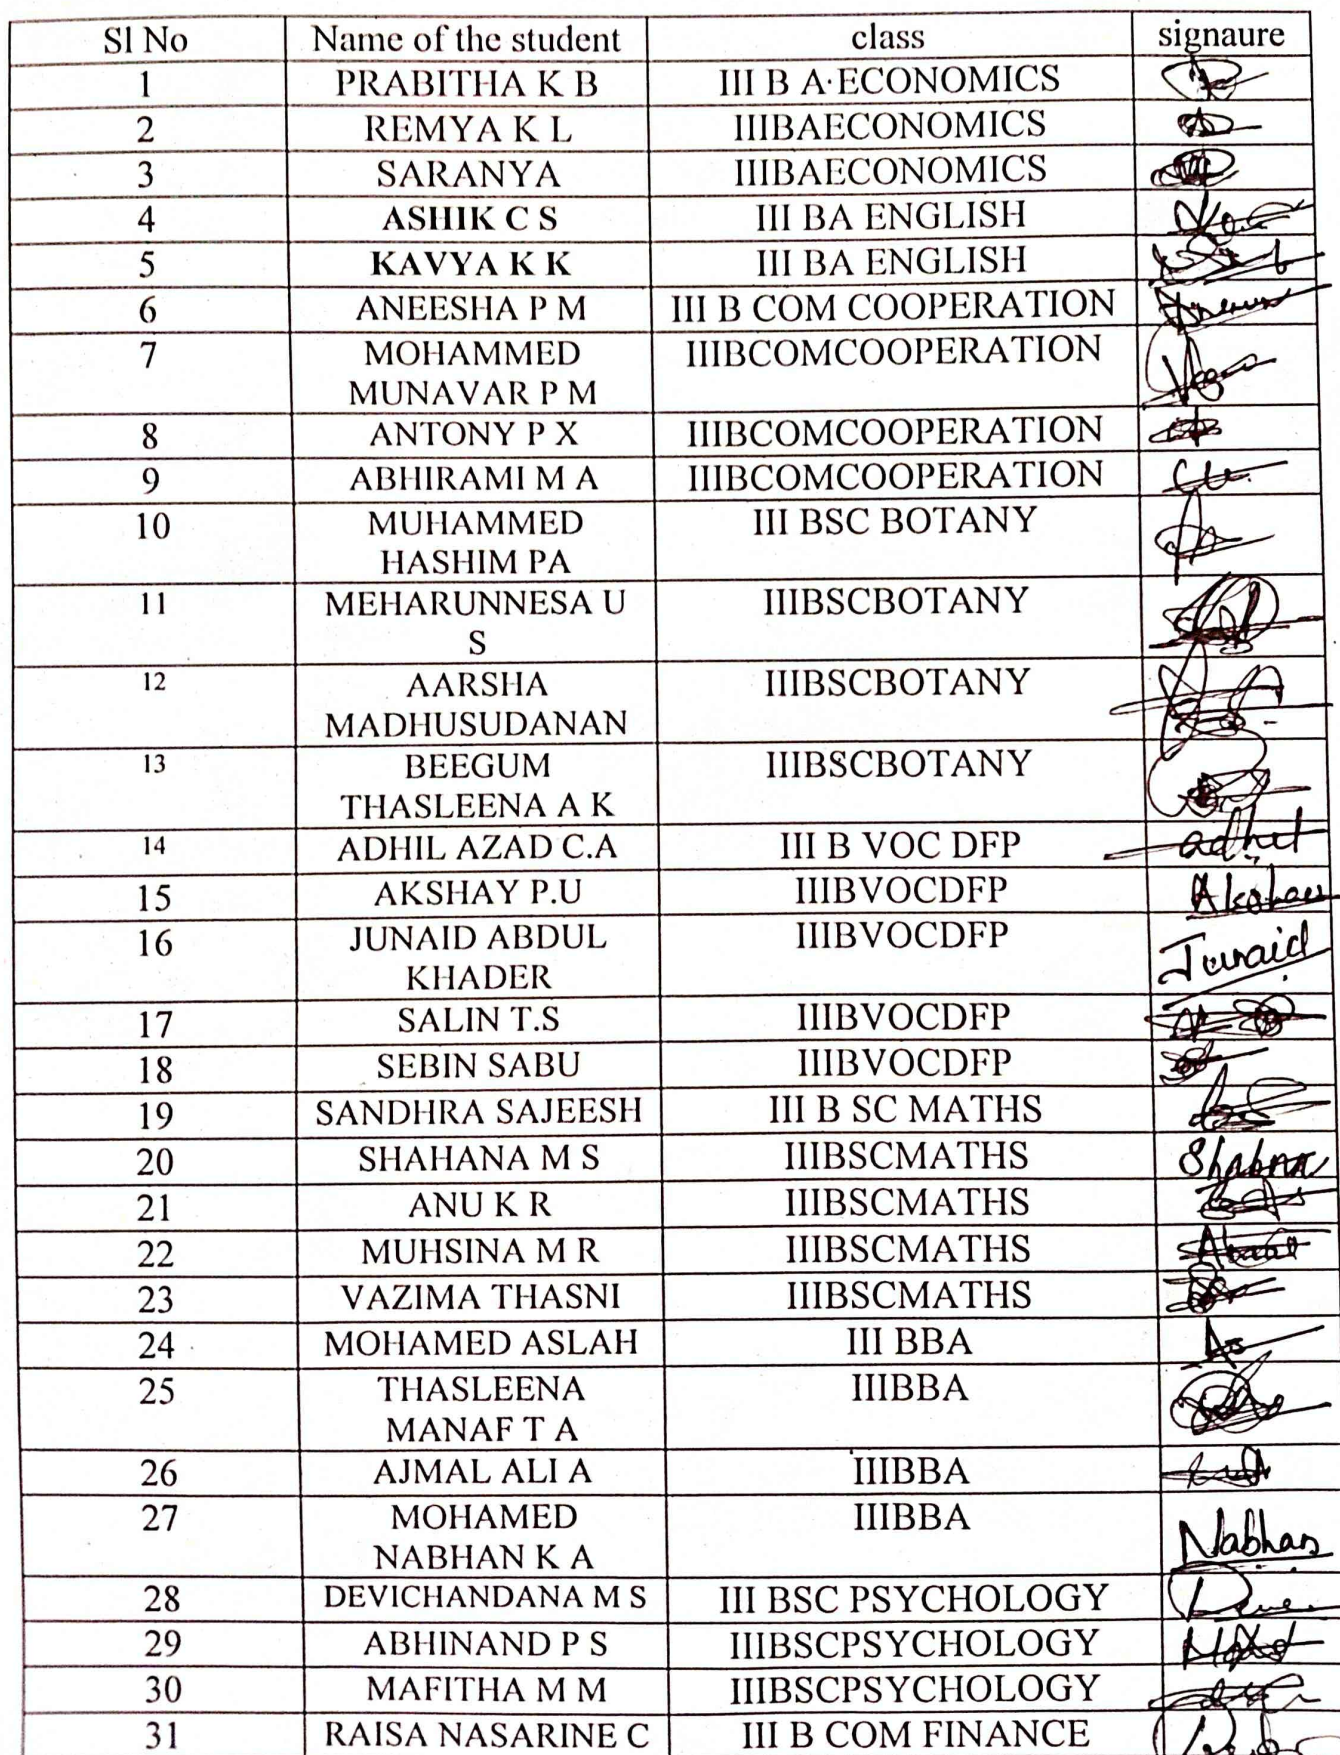 Sl No Name of the student class signaure
1 PRABITHA K B III B A ECONOMICS
2 REMYA K L IIIBAECONOMICS
3 SARANYA IIIBAECONOMICS
4 ASHIK C S III BA ENGLISH
5 KAVYA K K III BA ENGLISH
6 ANEESHA P M III B COM COOPERATION
7 MOHAMMED IIIBCOMCOOPERATION
MUNAVAR P M
8 ANTONY P X IIIBCOMCOOPERATION
9 ABHIRAMI M A IIIBCOMCOOPERATION
10 MUHAMMED III BSC BOTANY
HASHIM PA
11 MEHARUNNESA U IIIBSCBOTANY
S
12 AARSHA IIIBSCBOTANY
MADHUSUDANAN
13 BEEGUM IIIBSCBOTANY
THASLEENA A K
14 ADHIL AZAD C.A III B VOC DFP adhil
15 AKSHAY P.U IIIBVOCDFP Akshay
16 JUNAID ABDUL IIIBVOCDFP Junaid
KHADER
17 SALIN T.S IIIBVOCDFP
18 SEBIN SABU IIIBVOCDFP
19 SANDHRA SAJEESH III B SC MATHS
20 SHAHANA M S IIIBSCMATHS Shahna
21 ANU K R IIIBSCMATHS
22 MUHSINA M R IIIBSCMATHS
23 VAZIMA THASNI IIIBSCMATHS
24 MOHAMED ASLAH III BBA As
25 THASLEENA IIIBBA
MANAF T A
26 AJMAL ALI A IIIBBA
27 MOHAMED IIIBBA Nabhan
NABHAN K A
28 DEVICHANDANA M S III BSC PSYCHOLOGY
29 ABHINAND P S IIIBSCPSYCHOLOGY
30 MAFITHA M M IIIBSCPSYCHOLOGY
31 RAISA NASARINE C III B COM FINANCE